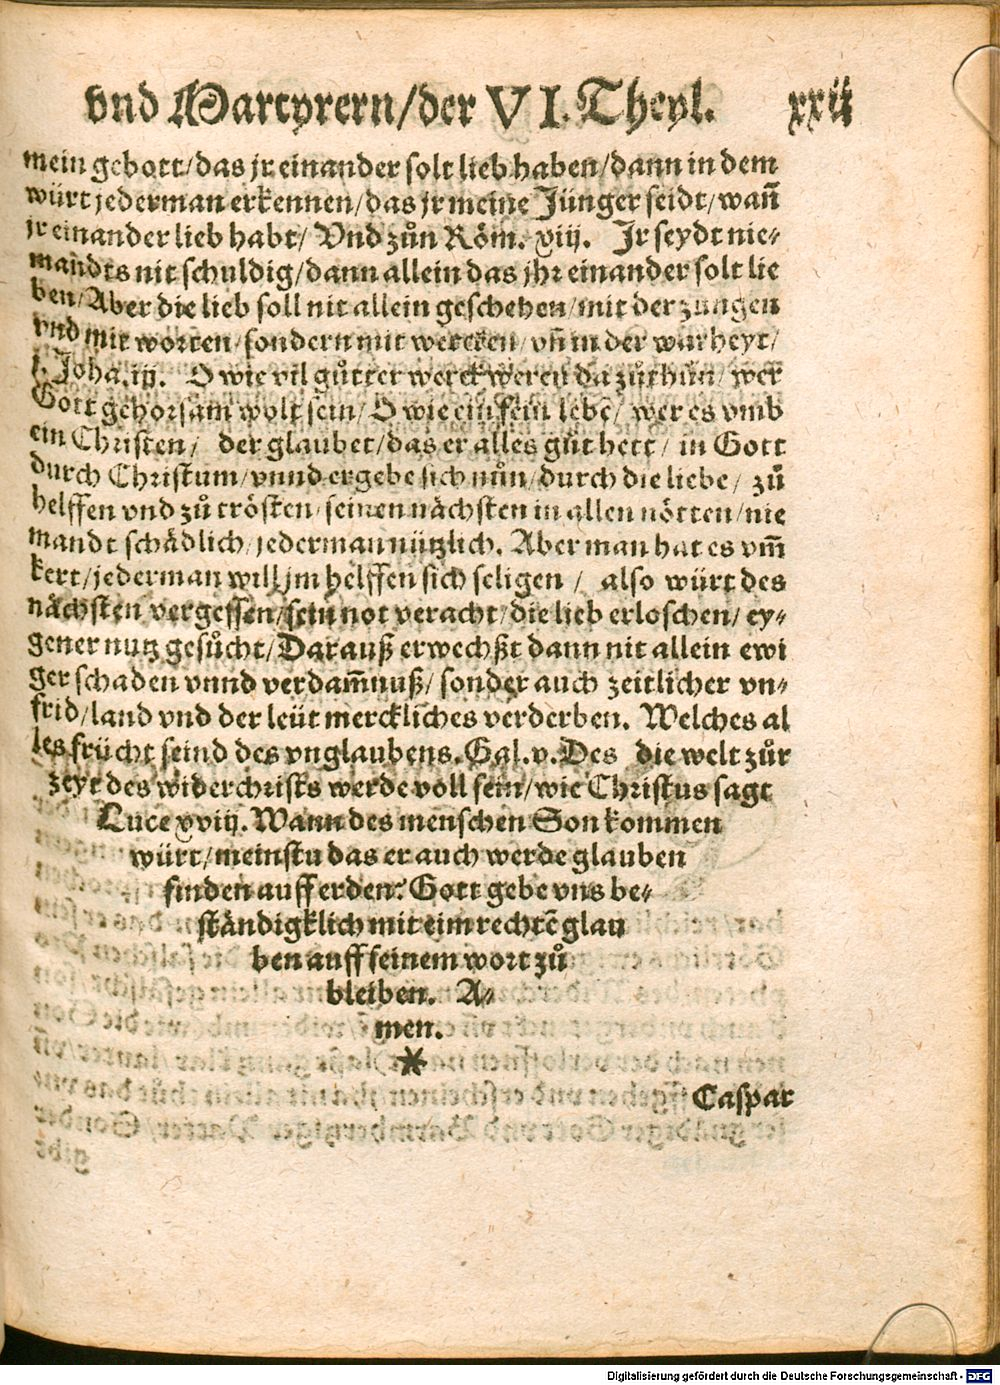 vnd Martyrern/der VI. Theyl. xxij
mein gebott/das jr einander solt lieb haben/dann in dem
würt jederman erkennen/das jr meine Jünger seidt/wañ
jr einander lieb habt/ Vnd zůn Röm. xiij. Jr seydt nie-
mandts nit schuldig/dann allein das jhr einander solt lie
ben/Aber die lieb soll nit allein geschehen/mit der zungen
vnd mit worten/sondern mit wercken/vñ in der warheyt/
j. Joha. iij. O wie vil gůtter werck weren da zůthůn/wer
Gott gehorsam wolt sein/O wie ein fein lebē/ wer es vmb
ein Christen/ der glaubet/das er alles gůt hett/ in Gott
durch Christum/vnnd ergebe sich nůn/durch die liebe/ zů
helffen vnd zů trösten/seinen nächsten in allen nötten/nie
mandt schädlich/jederman nützlich. Aber man hat es vm̃
kert/jederman will jm helffen sich seligen/ also würt des
nächsten vergessen/sein not veracht/die lieb erloschen/ ey-
gener nutz gesůcht/Darauß erwechßt dann nit allein ewi
ger schaden vnnd verdam̃nuß/sonder auch zeitlicher vn-
frid/land vnd der leüt merckliches verderben. Welches al
les frücht seind des vnglaubens. Gal. v. Des die welt zůr
zeyt des widerchrists werde voll sein/wie Christus sagt
Luce xviij. Wann des menschen Son kommen
würt/meinstu das er auch werde glauben
finden auff erden? Gott gebe vns be-
ständigklich mit eim rechtē glau
ben auff seinem wort zů
bleiben. A-
men.
*
Caspar
Digitalisierung gefördert durch die Deutsche Forschungsgemeinschaft - DFG